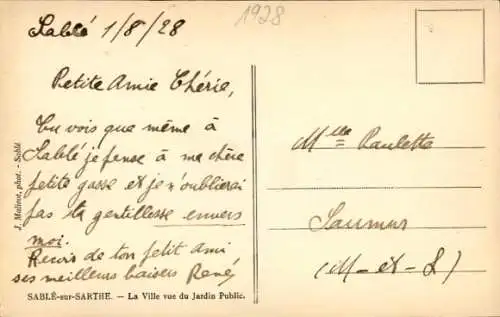 1928
Sablé 1/8/28
Petite Amie Chérie,
Tu vois que même à
Sablé je pense à ma chère
petite gosse et je n'oublierai
pas ta gentillesse envers
moi.
Reçois de ton petit ami
ses meilleurs baisers René
Mlle Paulette
Saumur
(M-et-L)
J. Malinet, phot. - Sablé
SABLÉ-sur-SARTHE. - La Ville vue du Jardin Public.